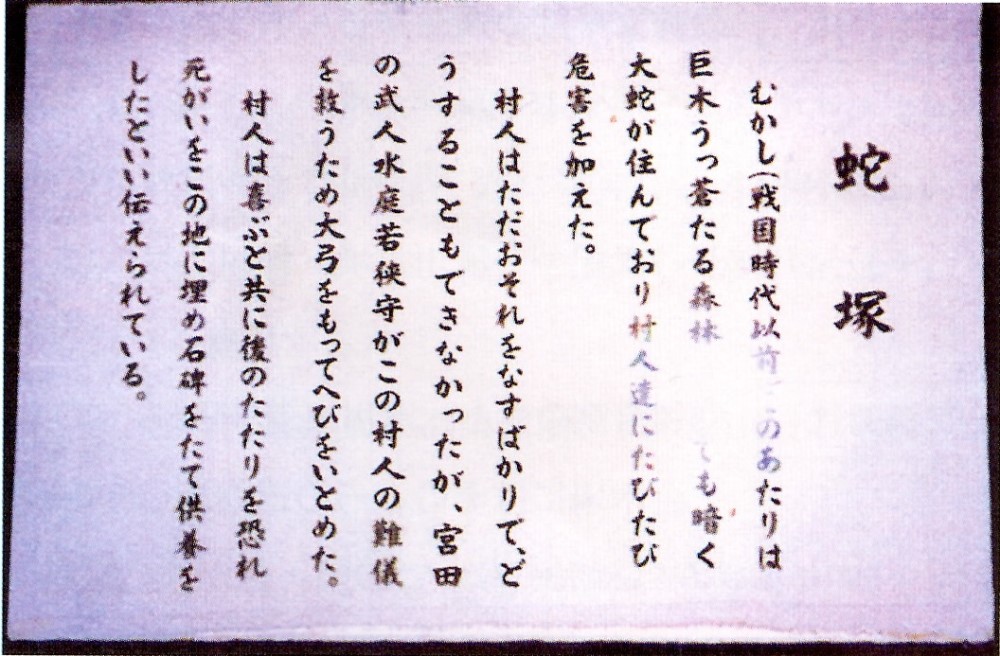 蛇塚
むかし(戦国時代以前 このあたりは
巨木うっ蒼たる森林 も暗く
大蛇が住んでおり村人達にたびたび
危害を加えた。
村人はただおそれをなすばかりで、ど
うすることもできなかったが、宮田
の武人水庭若狭守がこの村人の難儀
を救うため大弓をもってへびをいとめた。
村人は喜ぶと共に後のたたりを恐れ
死がいをこの地に埋め石碑をたて供養を
したといい伝えられている。